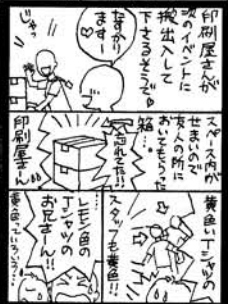 印刷屋さんが
次のイベントに
搬出入して
下さるそうで♡
たすかり
ますー♡
じゃっ
スペース内が
せまいので
友人の所に
おいてもらった
箱…
忘れてた!!
印刷屋さーん
黄色いTシャツの
スタッフも黄色!!
レモン色の
Tシャツの
お兄さーん!!!
黄色っていろいろ…